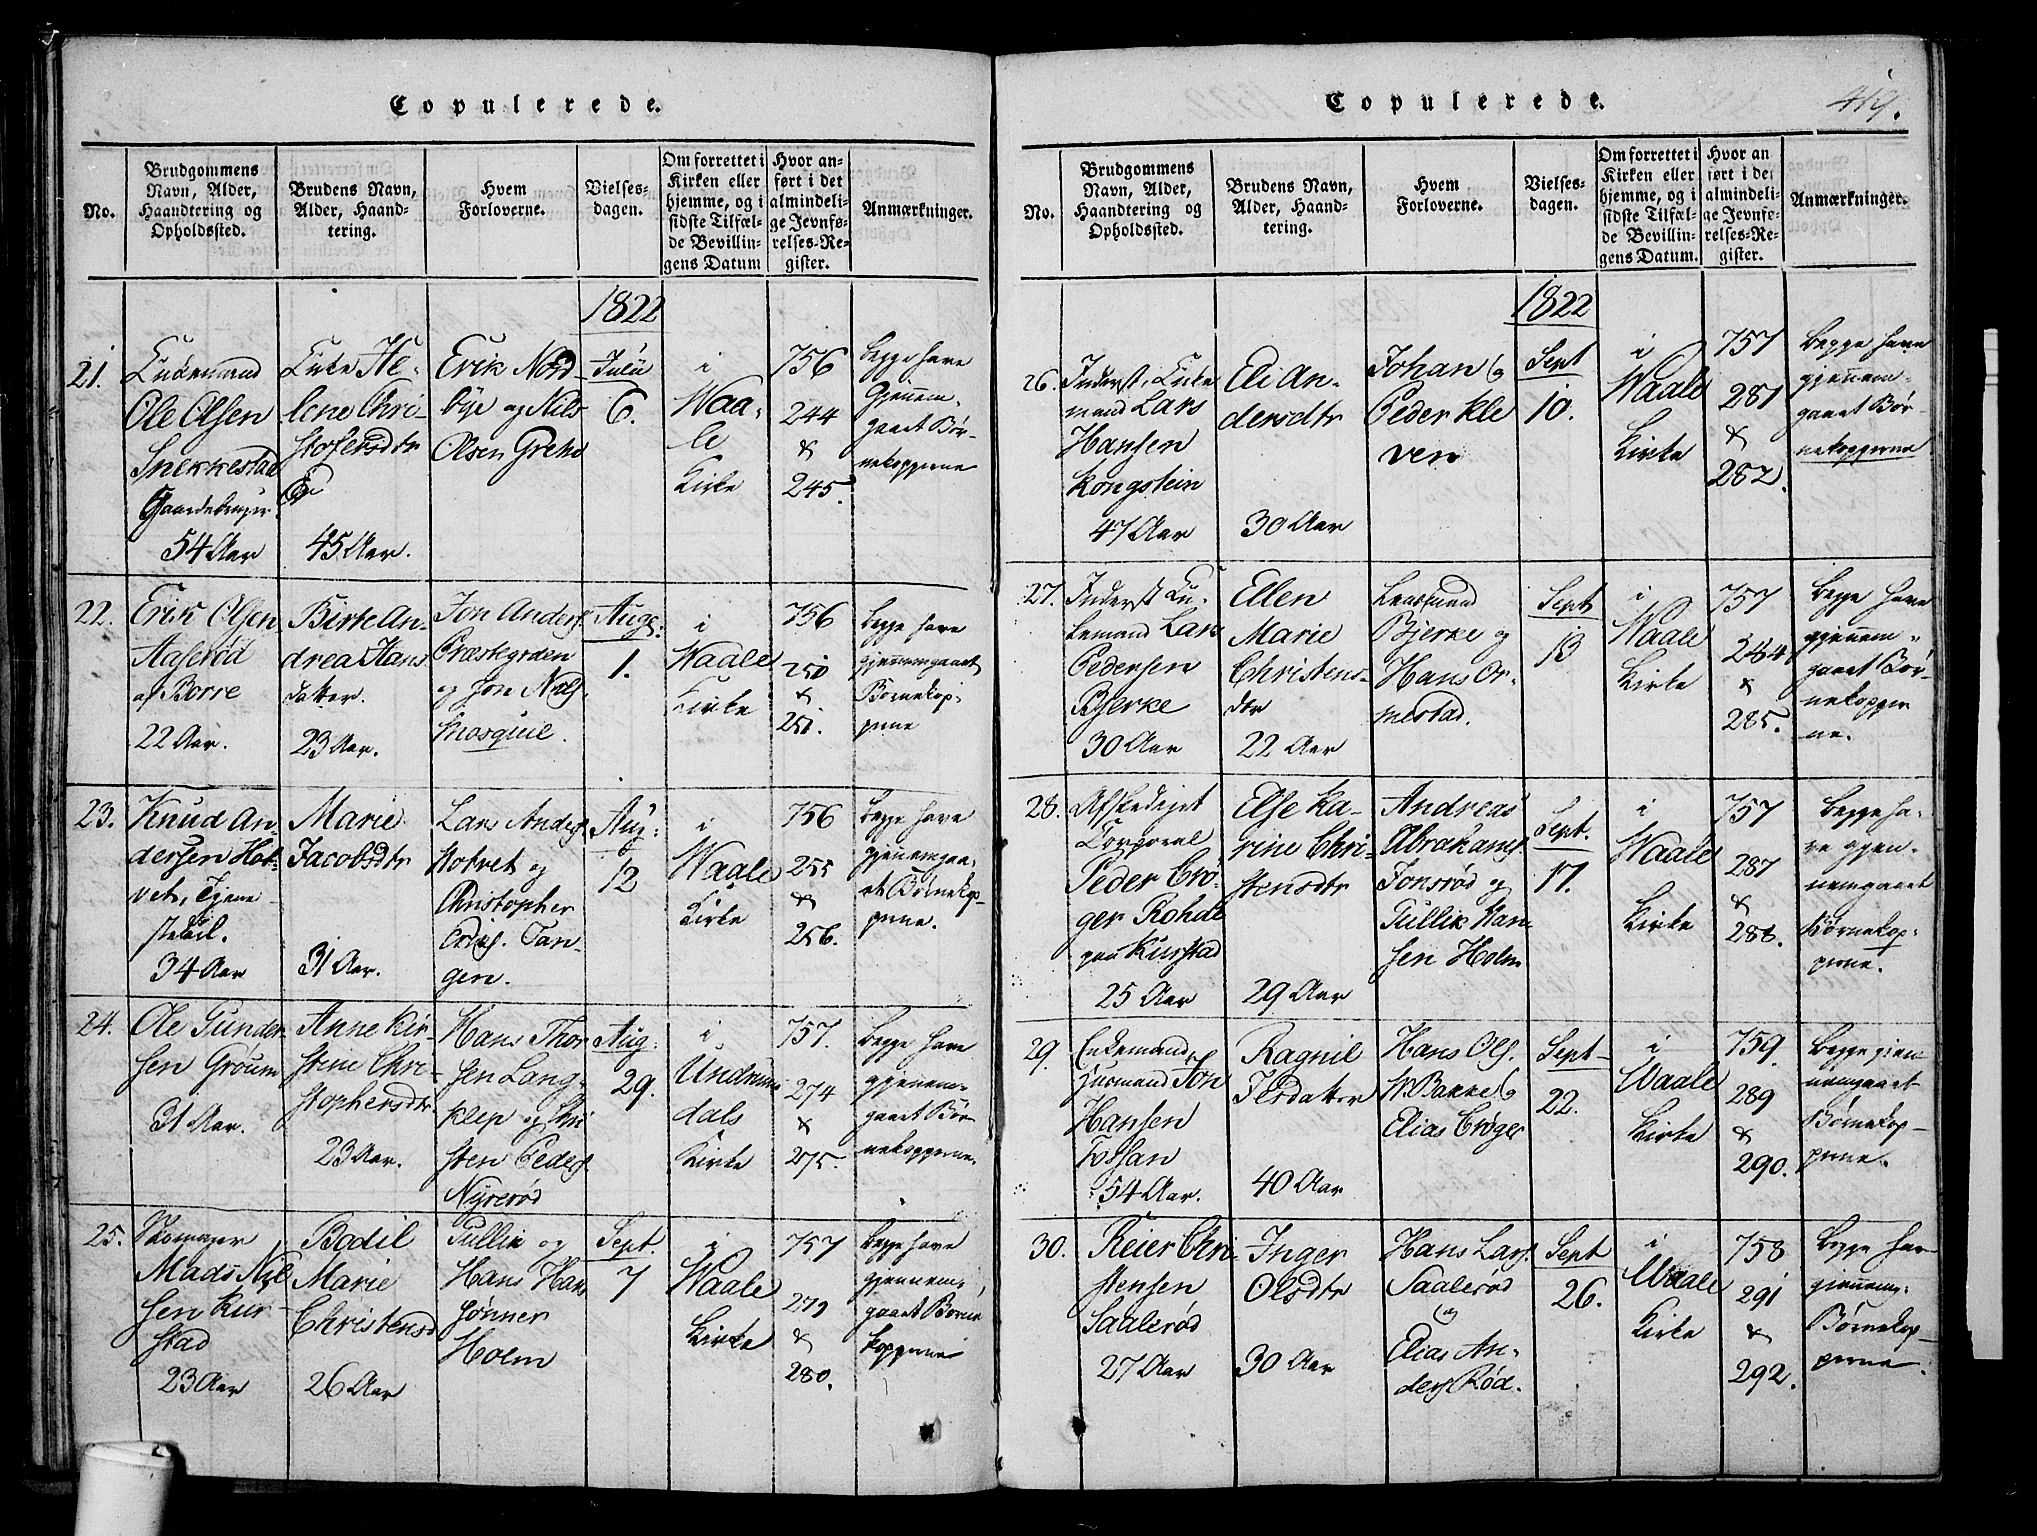 Copulerede.
No.
Brudgommens Navn, Alder, Haandtering og Opholdssted.
Brudens Navn, Alder, Haandtering.
Hvem Forloverne.
Vielsesdagen.
Om forrettet i Kirken eller hjemme, og i sidste Tilfælde Bevillingens Datum
Hvor anført i det almindelige Jevnførelses-Register.
Anmærkninger.
1822
21.
Ole Olsen
Snekkestad
Gaardebruger
54 Aar
Enke He-
lene Chri-
stofersdtr
45 Aar.
Erik Nord-
bye og Nils
Olsen
Julii
6.
i
Waa-
le
Kirke
756
244
&
245.
begge have
Gjennem-
gaaet Bør-
nekopperne
22.
Erik Olsen
Aaserød
af Borre
22 Aar.
Birte An-
drea Hans
datter.
23 Aar.
Jon Anders.
Præstegrden
og Jon Nils.
Aug:
1.
i
Waale
Kirke
756
250
&
251.
begge have
gjennemgaaet
Børnekop-
perne
23.
Knud An-
dersen Hot-
vet, Tjene-
34 Aar
Marie
Jacobsdtr
31 Aar.
Lars Anders.
Hotvet og
Christopher
Tan-
gen.
Aug:
12
i
Waale
Kirke
756
255
&
256.
begge have
gjennemgaa-
et Børnekop-
perne.
24.
Ole Gunder-
sen Groum
31 Aar.
Anne Kir-
stine Chri-
stophersdtr
23 Aar.
Hans Thor
sen Lang-
klep og Chri
sten Peders.
Nyrerød
Aug:
29.
i
Undrums
dals
Kirke
757.
274
&
275.
begge have
gjennem-
gaaet Bør-
nekopperne.
25.
Skomager
Mads Nil
sen Kur-
stad
23 Aar
Bodil
Marie
Christensd
26 Aar
Tullik og
Hans Hans
sønner
Holm
Sept.
7
i
Waale
Kirke
757
279
&
280.
begge have
gjennem-
gaaet Børne
kopperne
Copulerede.
419.
No.
Brudgommens Navn, Alder, Haandtering og Opholdssted.
Brudens Navn, Alder, Haandtering.
Hvem Forloverne.
Vielsesdagen.
Om forrettet i Kirken eller hjemme, og i sidste Tilfælde Bevillingens Datum.
Hvor anført i det almindelige Jevnførelses-Register.
Anmærkninger.
1822
26.
Inderst, Enke
mand Lars
Hansen
Kongstein
47 Aar
Eli An-
dersdtr
30 Aar
Johan og
Peder Kle
ven
Sept
10.
i
Waale
Kirke
757
281
&
282.
begge have
gjennem-
gaaet Bør-
nekopperne
27.
Inderst En-
kemand Lars
Pedersen
Bjerke
30 Aar
Ellen
Marie
Christens-
dtr
22 Aar
Lensmand
Bjerke og
Hans Or-
mestad.
Sept
13
i
Waale
Kirke
757
284
&
285.
begge have
gjennem-
gaaet Bør-
nekopper
ne.
28.
Afskediget
Corporal
Peder Crø-
ger Rohde
paa Kurstad
25 Aar
Else Ka-
rine Chri-
stensdtr
29 Aar
Andreas
Abrahams.
Jonsrød og
Tullik Han
sen Holm
Sept.
17.
i
Waale
Kirke
757
287
&
288.
begge ha-
ve gjen-
nemgaaet
Børnekop-
perne.
29.
Enkemand,
Huusmand Jon
Hansen
Fossan
54 Aar.
Ragnil
Ilsdatter
40 Aar
Hans Ols.
Bakke og
Elias Crøger
Sept
22.
i
Waale
Kirke
759
289
&
290.
begge gjen
nemgaaet
Børnekop-
perne.
30.
Reier Chri-
stensen
Saalerød
27 Aar
Inger
Olsdtr
30 Aar
Hans Lars.
Saalerød
og
Elias An-
ders. Rød.
Sept
26.
i
Waale
Kirke
758
291
&
292.
begge har
gjennem-
Børnekop-
perne.